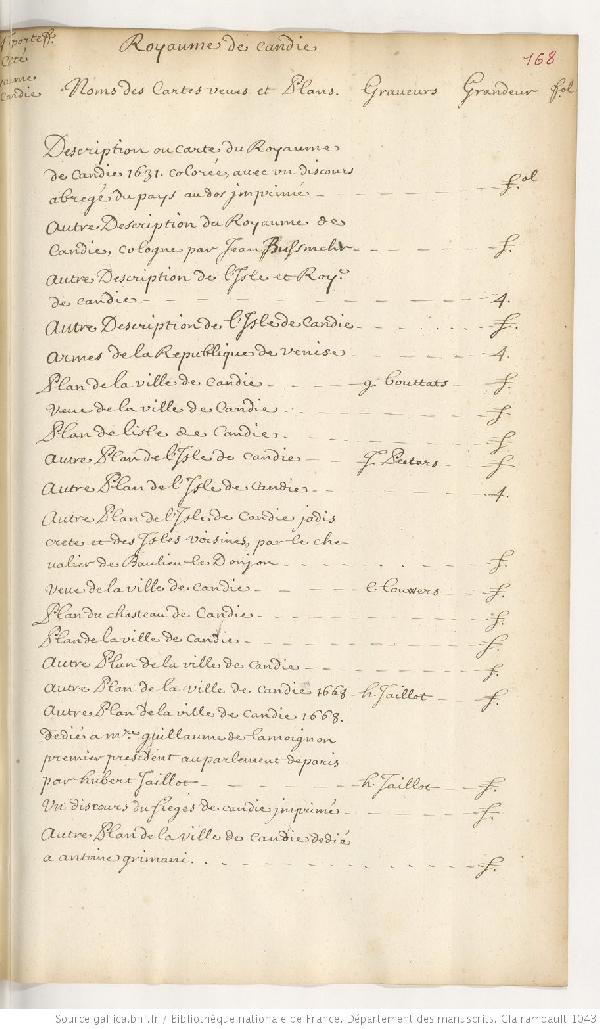 Royaume de Candie
168
Noms des Cartes veues et Plans. Graveurs Grandeur fol
Description ou carte du Royaume
de Candie 1631. colorée, avec un discours
abregé du pays au dos imprimé - f.ol
Autre Description du Royaume de
Candie, cologne par Jean Bussmeler - f.
Autre Description de l'Isle et Roy.e
de Candie - 4.
Autre Description de l'Isle de Candie - f.
Armes de la Republique de Venise - 4.
Plan de la ville de Candie - g. bouttats - f.
Veue de la ville de Candie - f.
Plan de l'isle de Candie. f.
Autre Plan de l'Isle de Candie - J. Peeters - f.
Autre Plan de l'Isle de Candie - 4.
Autre Plan de l'Isle de Candie jadis
crete et des Isles voisines, par le che-
valier de Baulieu le Donjon - f.
Veue de la ville de Candie - C. Lauwers - f.
Plan du chasteau de Candie - f.
Plan de la ville de Candie - f.
Autre Plan de la ville de Candie - f.
Autre Plan de la ville de Candie 1668 - h. Jaillot - f.
Autre Plan de la ville de Candie 1668.
dedié a m.re guillaume de lamoignon
premier president au parlement de paris
par hubert Jaillot - h. Jaillot - f.
Un discours du sieges de candie imprimé - f.
Autre Plan de la ville de Candie dedié
a antoine grimani. f.
Source gallica.bnf.fr / Bibliothèque nationale de France. Département des manuscrits. Clairambault 1043